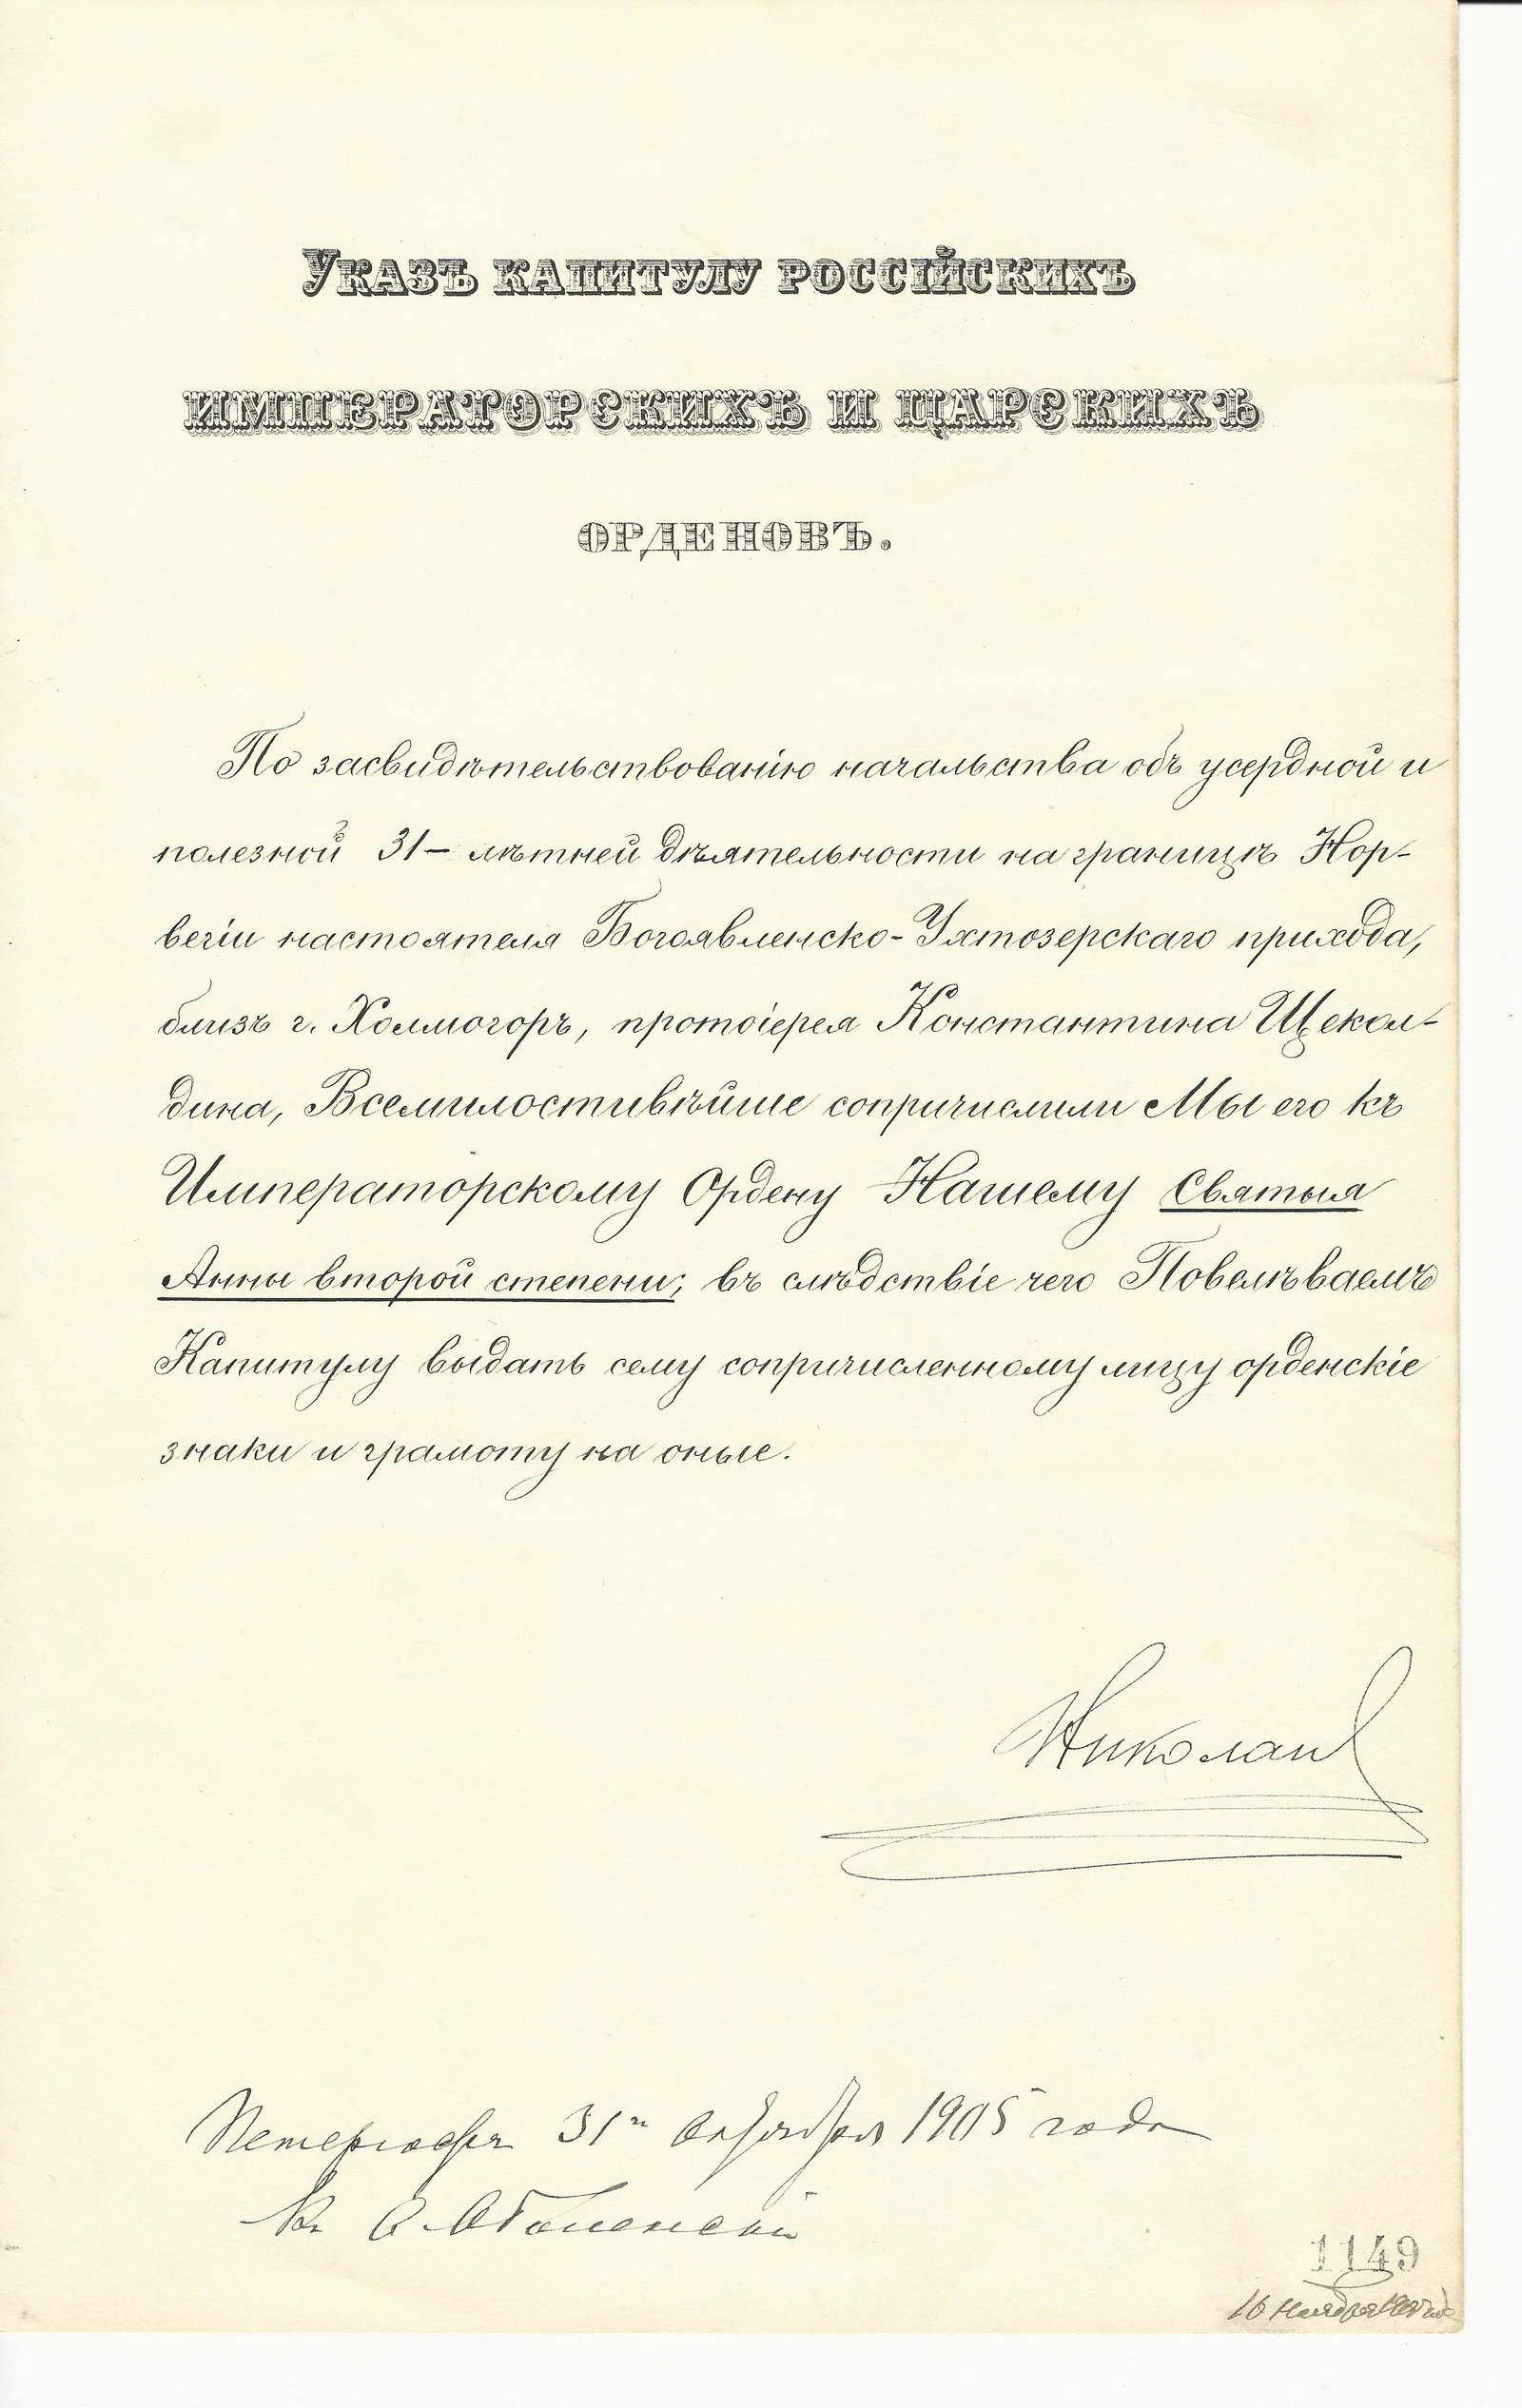 Указъ капитулу россійскихъ
императорскихъ и царскихъ
орденовъ.
По засвидѣтельствованію начальства объ усердной и
полезной 31-лѣтней дѣятельности на границѣ Нор-
вегіи настоятеля Богоявленско-Ухтозерскаго прихода,
близъ г. Холмогоръ, протоіерея Константина Щекол-
дина, Всемилостивѣйше сопричислили Мы его къ
Императорскому Ордену Нашему Святыя
Анны второй степени, въ слѣдствіе чего Повелѣваемъ
Капитулу выдать сему сопричисленному лицу орденскіе
знаки и грамоту на оные.
Николай
Петергофъ 31го Октября 1905 года
Кн А. Оболенскій
1149
16 Ноября